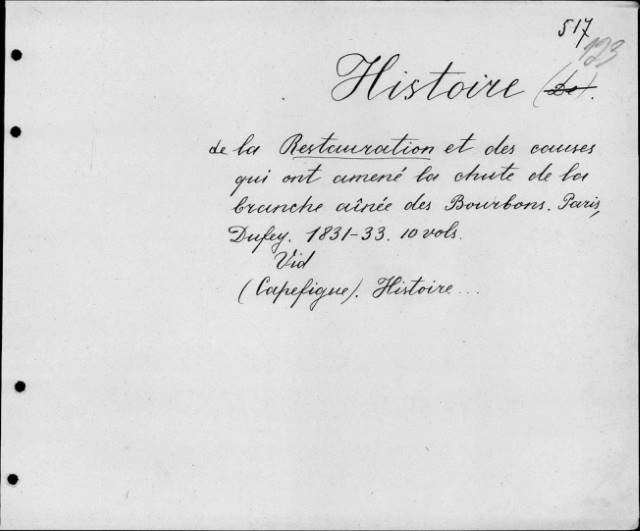 517
123
Histoire (De).
de la Restauration et des causes
qui ont amené la chute de la
branche aînée des Bourbons. Paris,
Dufey. 1831-33. 10 vols.
Vid
(Capefigue). Histoire...